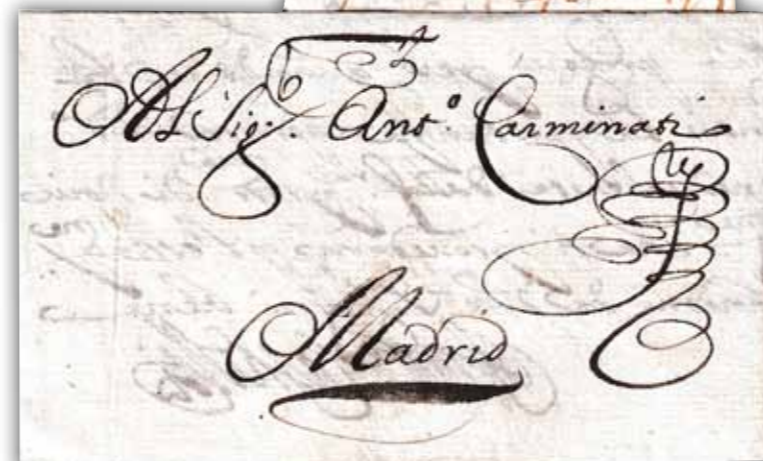 Al Sig.r Ant.º Carminati
Madrid